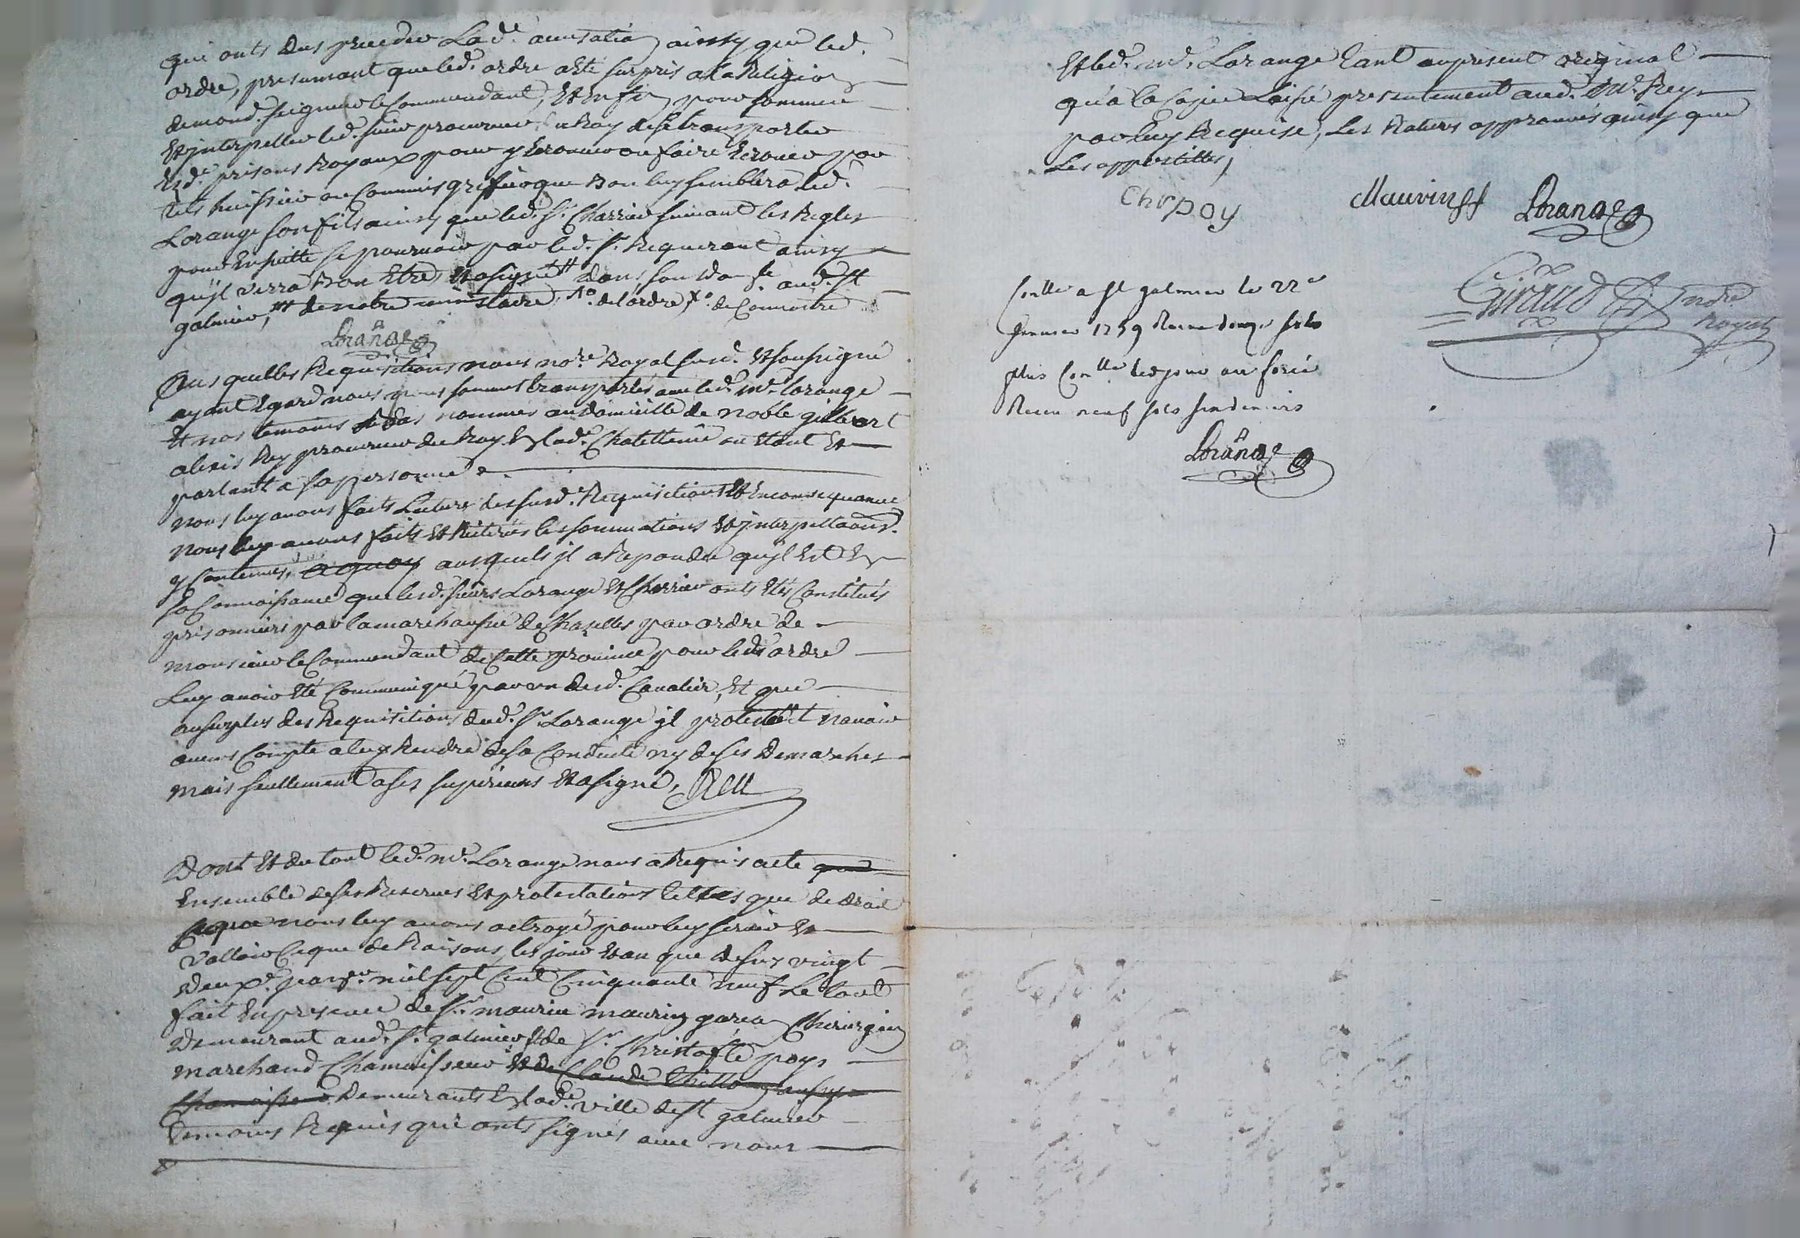 qui onts dus preceder Lad.e accusation ainssy que led.
ordre, presumant que led. ordre a ete surpris a la Religion
de mond. seigneur le Commendant, Et enfin pour sommer
Et jnterpeller led. sieur procureur du Roy de se transporter
Esd.es prisons Royaux pour y Ecrouer ou faire Ecrouer par
tels huissier ou Commis greffier que Bon luy semblera led.
Lorange son fils ainsy que led. Sr. Charrier suivant les Regles
pour Ensuitte se pourvoir par led. Sr. Requerant ainsy
qu'jl verra Bon Etre Et a signé dans son dom.le aud. St
galmier, de notre ministaire, de l'ordre de Connoitre
Lorange
Aus quelles Requisitions nous no.re Royal susd. Et soussigné
ayant Egard nous nous sommes transportés avec led. Mr. Lorange
Et nos temoins Bas nommés au domicille de noble gilbert
alexis Rey procureur du Roy En lad.e Chatellenie ou Etant Et
parlant a sa personne
nous luy avons faits Lecture des susd. Requisitions Et En consequance
nous luy avons faits Et Reiterés les sommations Et jnterpellaons.
y Contenues, a quoy ausquels jl a Repondu qu'jl Est En
sa Connoissance que lesd. sieurs Lorange Et Charrier onts Etés Constitués
prisonniers par la marechaussée de Chazelles par ordre de
monsieur le Commendant de Cette province pour led. ordre
Luy avoir Eté Communiqué par un desd. Cavalier, Et que
au surplus des Requisitions dud. Sr. Lorange jl protestoit n'avoir
aucuns Compte a luy Rendre de sa Conduite ny de ses Demarches
mais seullement a ses superieurs Et a signé, Rey
Dont Et du tout led. Mr. Lorange nous a Requis acte que
Ensemble de ses Reserves Et protestations telles que de droit
ce que nous luy avons octroyé pour luy servir Et
valloir Ce que de Raisons, les jour Et an que dessus vingt
deux.e janv.er mil sept Cent Cinquante neuf Le tout
fait En presence de Sr. maurice maurin garcon Chirurgien
Demeurant aud. St. galmier Et de Sr. Christofle pays
marchand Chamoisseur Et de Claude
Chamoiseur Demeurants En lad.e ville de St galmier
temoins Requis qui onts signés avec nous
Et led. Mr. Lorange tant au present original
qu'a la Copie Laissé presentement aud. Mr. Rey
par luy Requise, Les Ratures approuvés ainsy que
Les appostilles,
Chrpay
Maurin
Lorange
Giraud
notre
Royal
Conlle a St galmier le 22e
Janvier 1759 Receu douze sols
plus Conlle led jour au
Receu neuf sols six deniers
Lorange